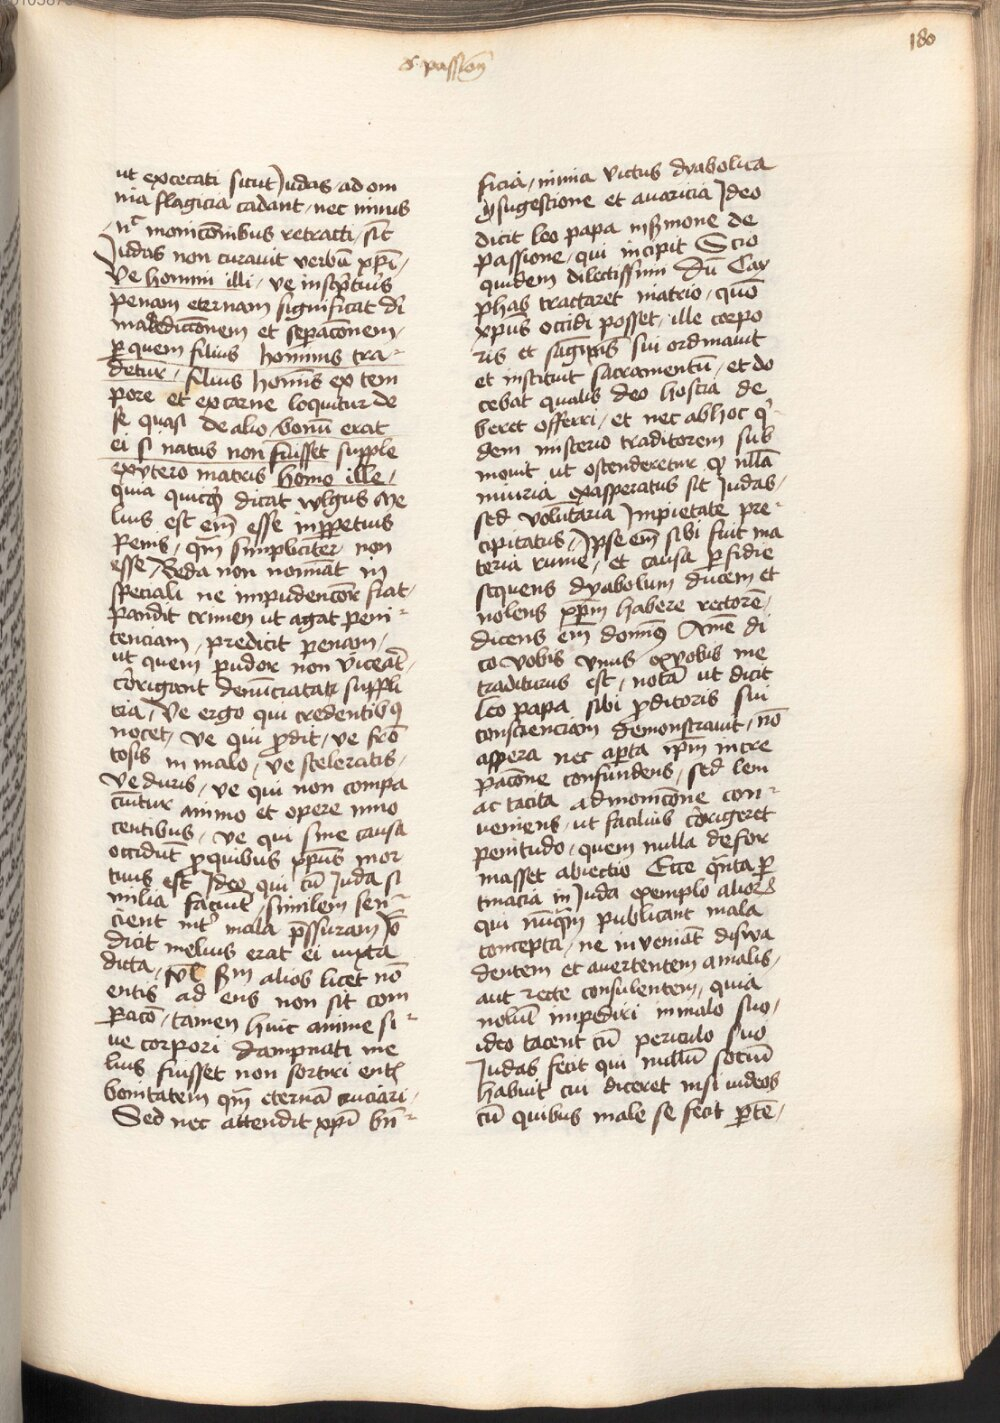 180
passion̄
ut excecati sicut Judas, ad om
nia flagicia cadant, nec minus
nc̄ monicōnibus retracti, sic̄
Judas non curavit verbū xp̄i,
Ve homini illi, ve in sc̄ptur̄s
penam eternam significat dī
maledictōnem et sepacōnem,
p̱ quem filius hominis tra-
detur, filius homīs ex tem
pore et ex carne loquitur de
se quasi de alio, bonū erat
ei si natus non fuisset supple
ex utero matris homo ille,
quia quicq̄ dicat wlgus me
lius est em̄ esse in pp̱etuis
penis, qm̄ simpliciter non
esse, Beda non nominat in
speciali ne impudencōr fiat,
pandit crimen ut agat peni-
tenciam, predicit penam,
ut quem pudor non viceāt,
cōrigant denūciata suppli
cia, Ve ergo qui credentibus
nocet, ve qui p̄dit, ve frō
tosis in malo, ve sceleratis,
ve duris, ve qui non compa
ciūtur animo et opere inno
centibus, ve qui sine causa
occidūt p̄ quibus xp̄us mor
tuus est, Ideo qui cū Juda si
milia faciūt, similem sen-
cient int̄ mala p̄ssuram Iō
dicit melius erat ei iuxta
dicta, Vel sm̄ alios licet nō
entis ad ens non sit com
pacō, tamen huic anime si-
ve corpori dampnati me
lius fuisset non sortiri entis̄
bonitatem qm̄ eternā cruciari,
Sed nec attendit xp̄i bn̄-
ficia, nimia victus dyabolica
sugestione et avaricia Ideo
dicit leo papa in sermone de
passione, qui incipit Scio
quidem dilectissimi Dū Cay
phas tractaret in atrio, quō
xp̄us occidi posset, ille corpo
ris et sāgīnis sui ordinavit
et instituit sacramentū, et do
cebat qualis deo hostia de
beret offerri, et nec ab hoc q̄-
dem misterio traditorem sub
movit ut ostenderetur qp̄ nllā
iniuria exasperatus sit Judas,
sed voluntaria Impietate pre-
cipitatus, Ipse em̄ sibi fuit ma
teria ruine, et causa p̱fidie
sequens dyabolum ducem et
nolens xp̄m habere rectorē,
dicens em̄ domīus Amē di
co vobis unus ex vobis me
traditurus est, notā ut dicit
Leo papa sibi p̄ditoris sui
conscienciam demonstravit, nō
aspera nec ap̱ta ip̄m incre
pacōne confundens, sed leni
ac tacita admonicōne con-
veniens, ut facilius cōrigeret
penitudo, quem nulla defor
masset abiectio Ecce q̄nta p̱
tinacia in Juda exemplo alioꝝ
qui nūq̄m publicant mala
concepta, ne inveniāt diswa
dentem et avertentem a malis,
aut recte consulentem, quia
nolūt impediri in malo suo,
ideo tacent cū periculo suo
Judas fecit qui nullū sociū
habuit cui diceret nisi iudeos
cū quibus male se fecit p̱tē,